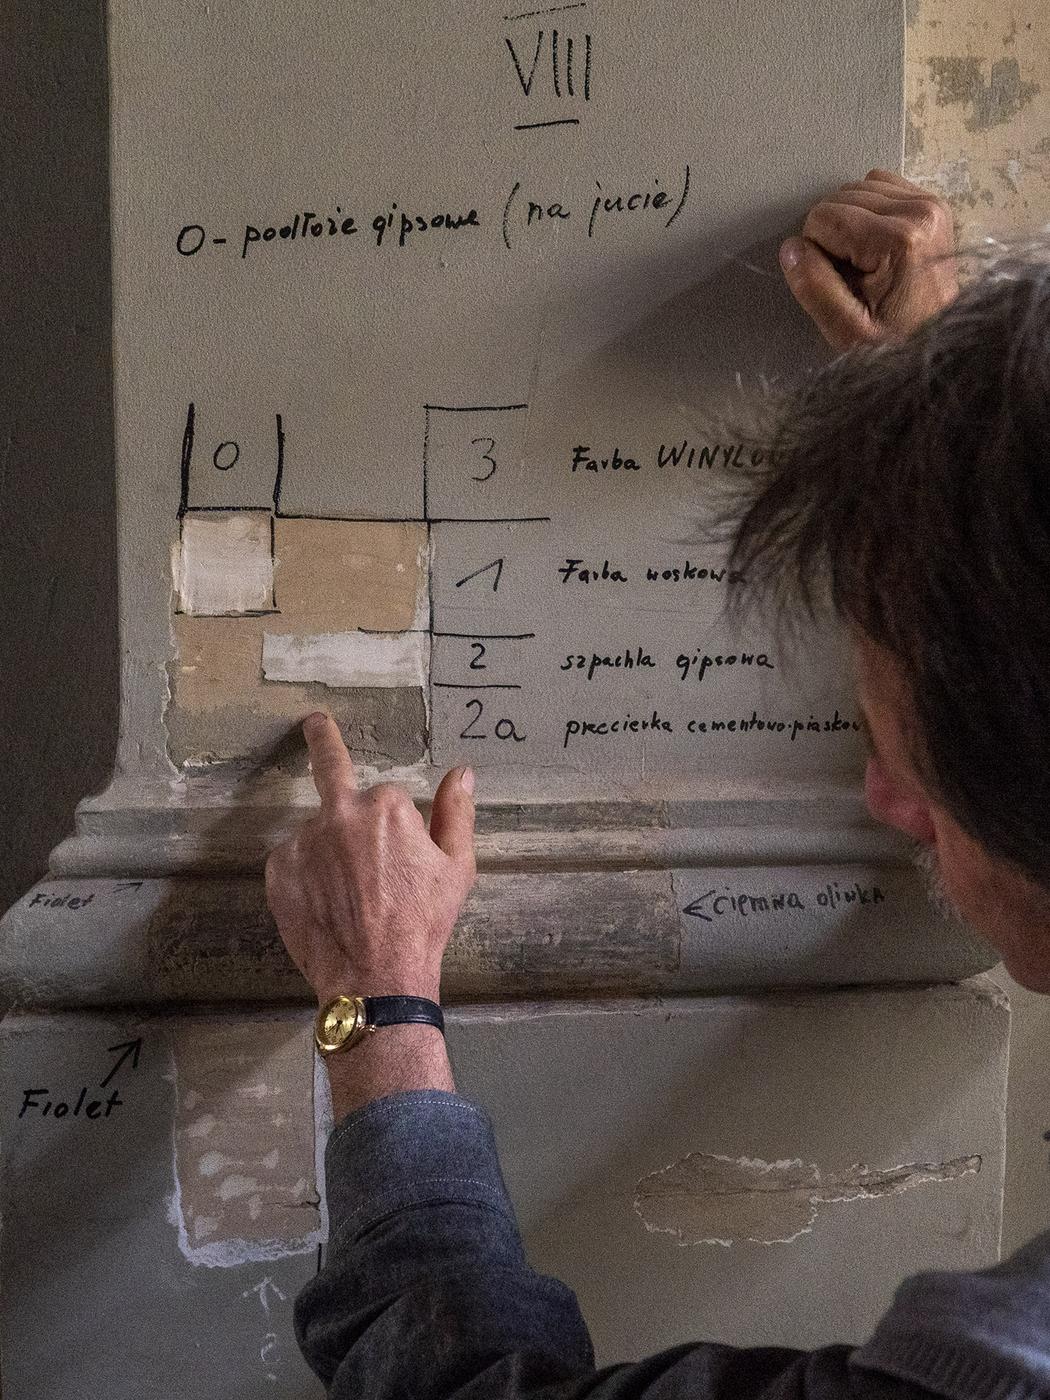 VIII
0 - podłoże gipsowe (na jucie)
0
3 Farba
1 Farba woskowa
2 szpachla gipsowa
2a przecierka
Fiolet
← ciemna olinka
Fiolet
?